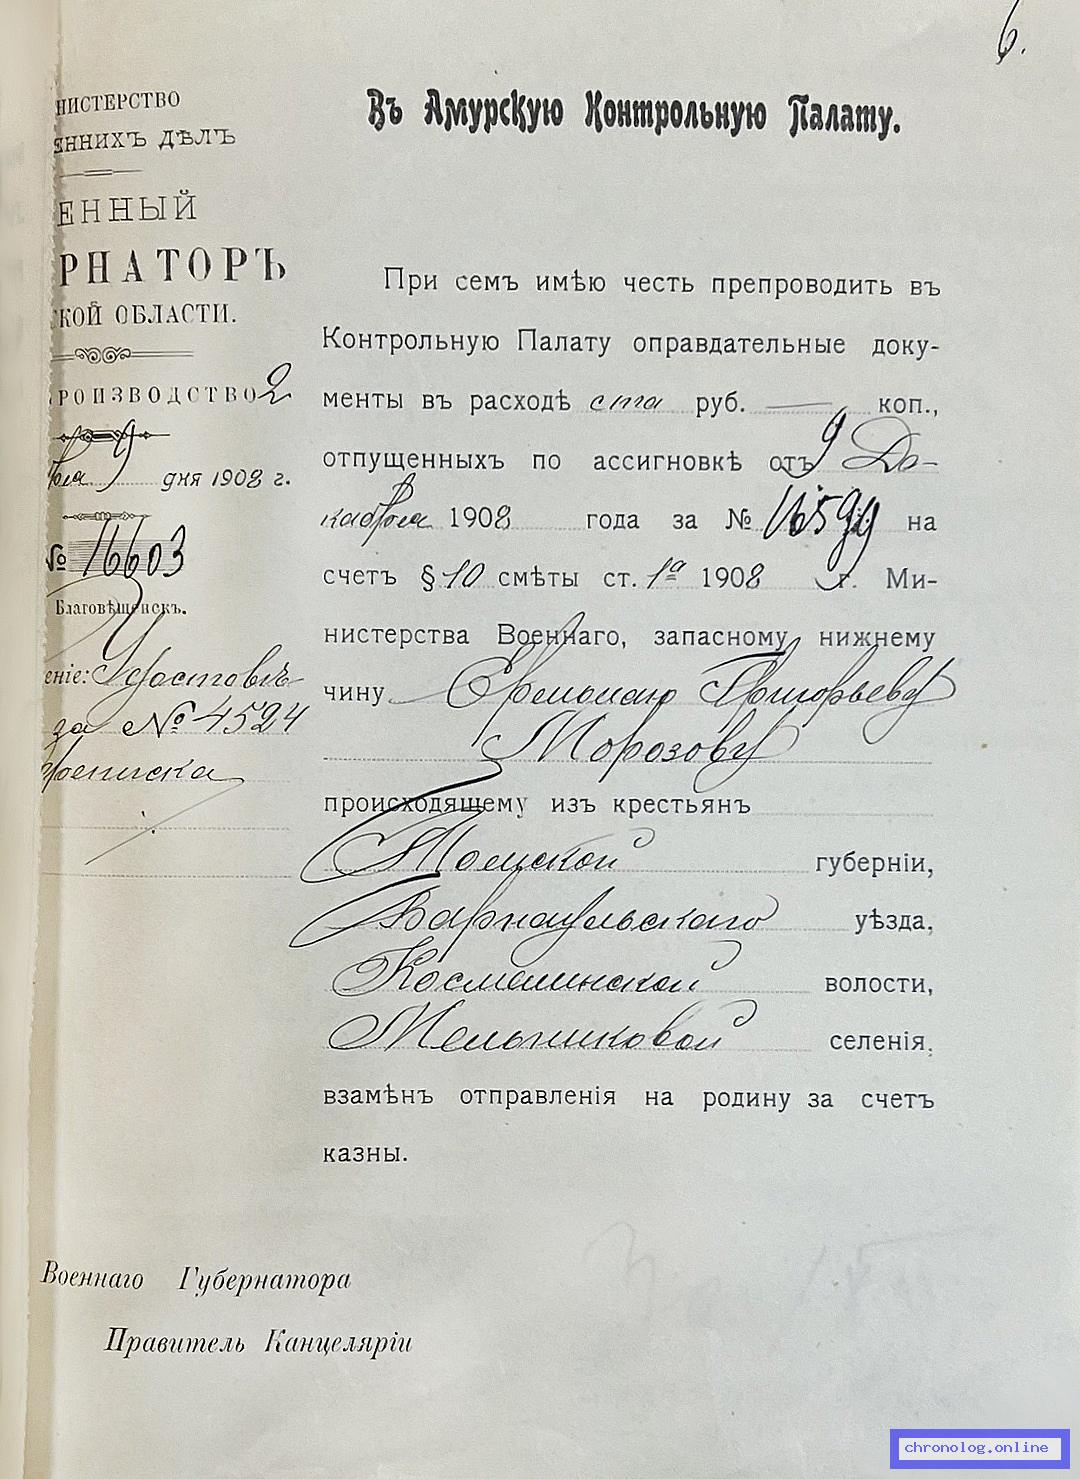 6.
НИСТЕРСТВО
ЕННИХЪ ДѢЛЪ
ЕННЫЙ
РНАТОРЪ
КОЙ ОБЛАСТИ.
РОИЗВОДСТВО 2
9 дня 1908 г.
№ 16603
Благовѣщенскъ.
еніе: Удостовѣ-
за № 4524
Въ Амурскую Контрольную Палату.
При семъ имѣю честь препроводить въ
Контрольную Палату оправдательные доку-
менты въ расходѣ ста руб. — коп.,
отпущенныхъ по ассигновкѣ отъ 9 Де-
кабря 1908 года за № 16599 на
счетъ § 10 смѣты ст. 1а 1908 г. Ми-
нистерства Военнаго, запасному нижнему
чину Григорьеву
Морозову
происходящему изъ крестьянъ
Томской губерніи,
Барнаульскаго уѣзда,
Космалинской волости,
Мельниковой селенія,
взамѣнъ отправленія на родину за счетъ
казны.
Военнаго Губернатора
Правитель Канцеляріи
chronolog.online